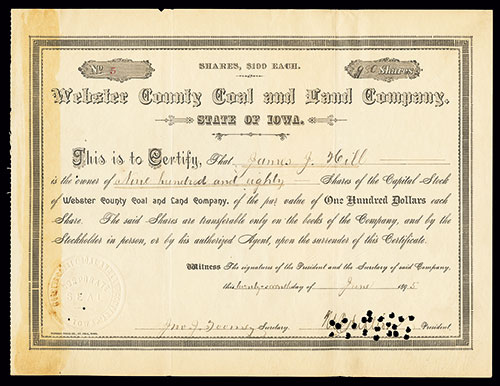 No 5
SHARES, $100 EACH.
Shares
Webster County Coal and Land Company.
STATE OF IOWA.
This is to Certify, That James J. Hill
is the owner of Nine hundred and eighty Shares of the Capital Stock
of Webster County Coal and Land Company, of the par value of One Hundred Dollars each
Share. The said Shares are transferable only on the books of the Company, and by the
Stockholder in person, or by his authorized Agent, upon the surrender of this Certificate.
Witness The signatures of the President and the Secretary of said Company,
this day of June 1895
Jno. J. Toomey Secretary. President.